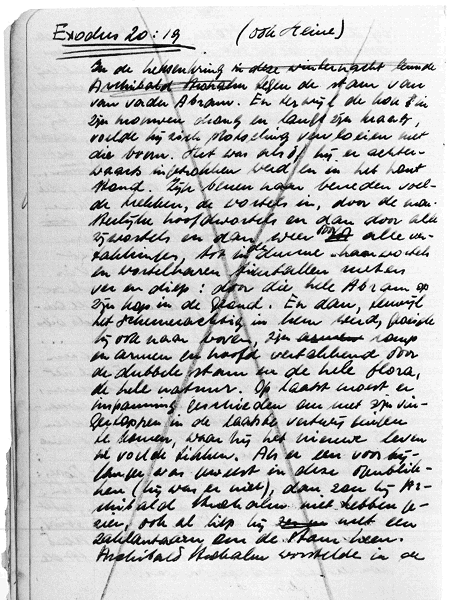 Exodus 20:19 (ook Heine)
In de heksenkring in deze winternacht leunde
Archibald Strohalm tegen de stam van
van vader Abram. En terwijl de kou in
zijn mouwen drong en langs zijn kraag,
voelde hij zich plotseling vergroeien met
die boom. Het was alsof hij er achter-
waarts ingetrokken werd en in het hout
stond. Zijn benen naar beneden voel-
de hebben, de wortels in, door de
hoofdwortels en dan door alle
zijwortels en dan weer door alle ver-
takkingen, tot in de dunne haarwortels
en wortelharen tientallen meters
ver en diep: door die hele Abram op
zijn kop in de grond. En dan, terwijl
het schemerachtig in hem werd, groeide
hij ook naar boven, zijn romp
en armen en hoofd vertakkend door
de dubbele stam en de hele flora,
de hele natuur. Op laatst moest er
inspanning geschieden om met zijn vin-
gertoppen in de laatste twijgen
te komen, waar hij het nieuwe leven
al voelde tikken. Als er een voorbij-
ganger was geweest in deze
(hij was er niet), dan zou hij Ar-
chibald Strohalm niet hebben ge-
zien, ook al liep hij met een
zaklantaarn om de stam heen.
Archibald Strohalm worstelde in de